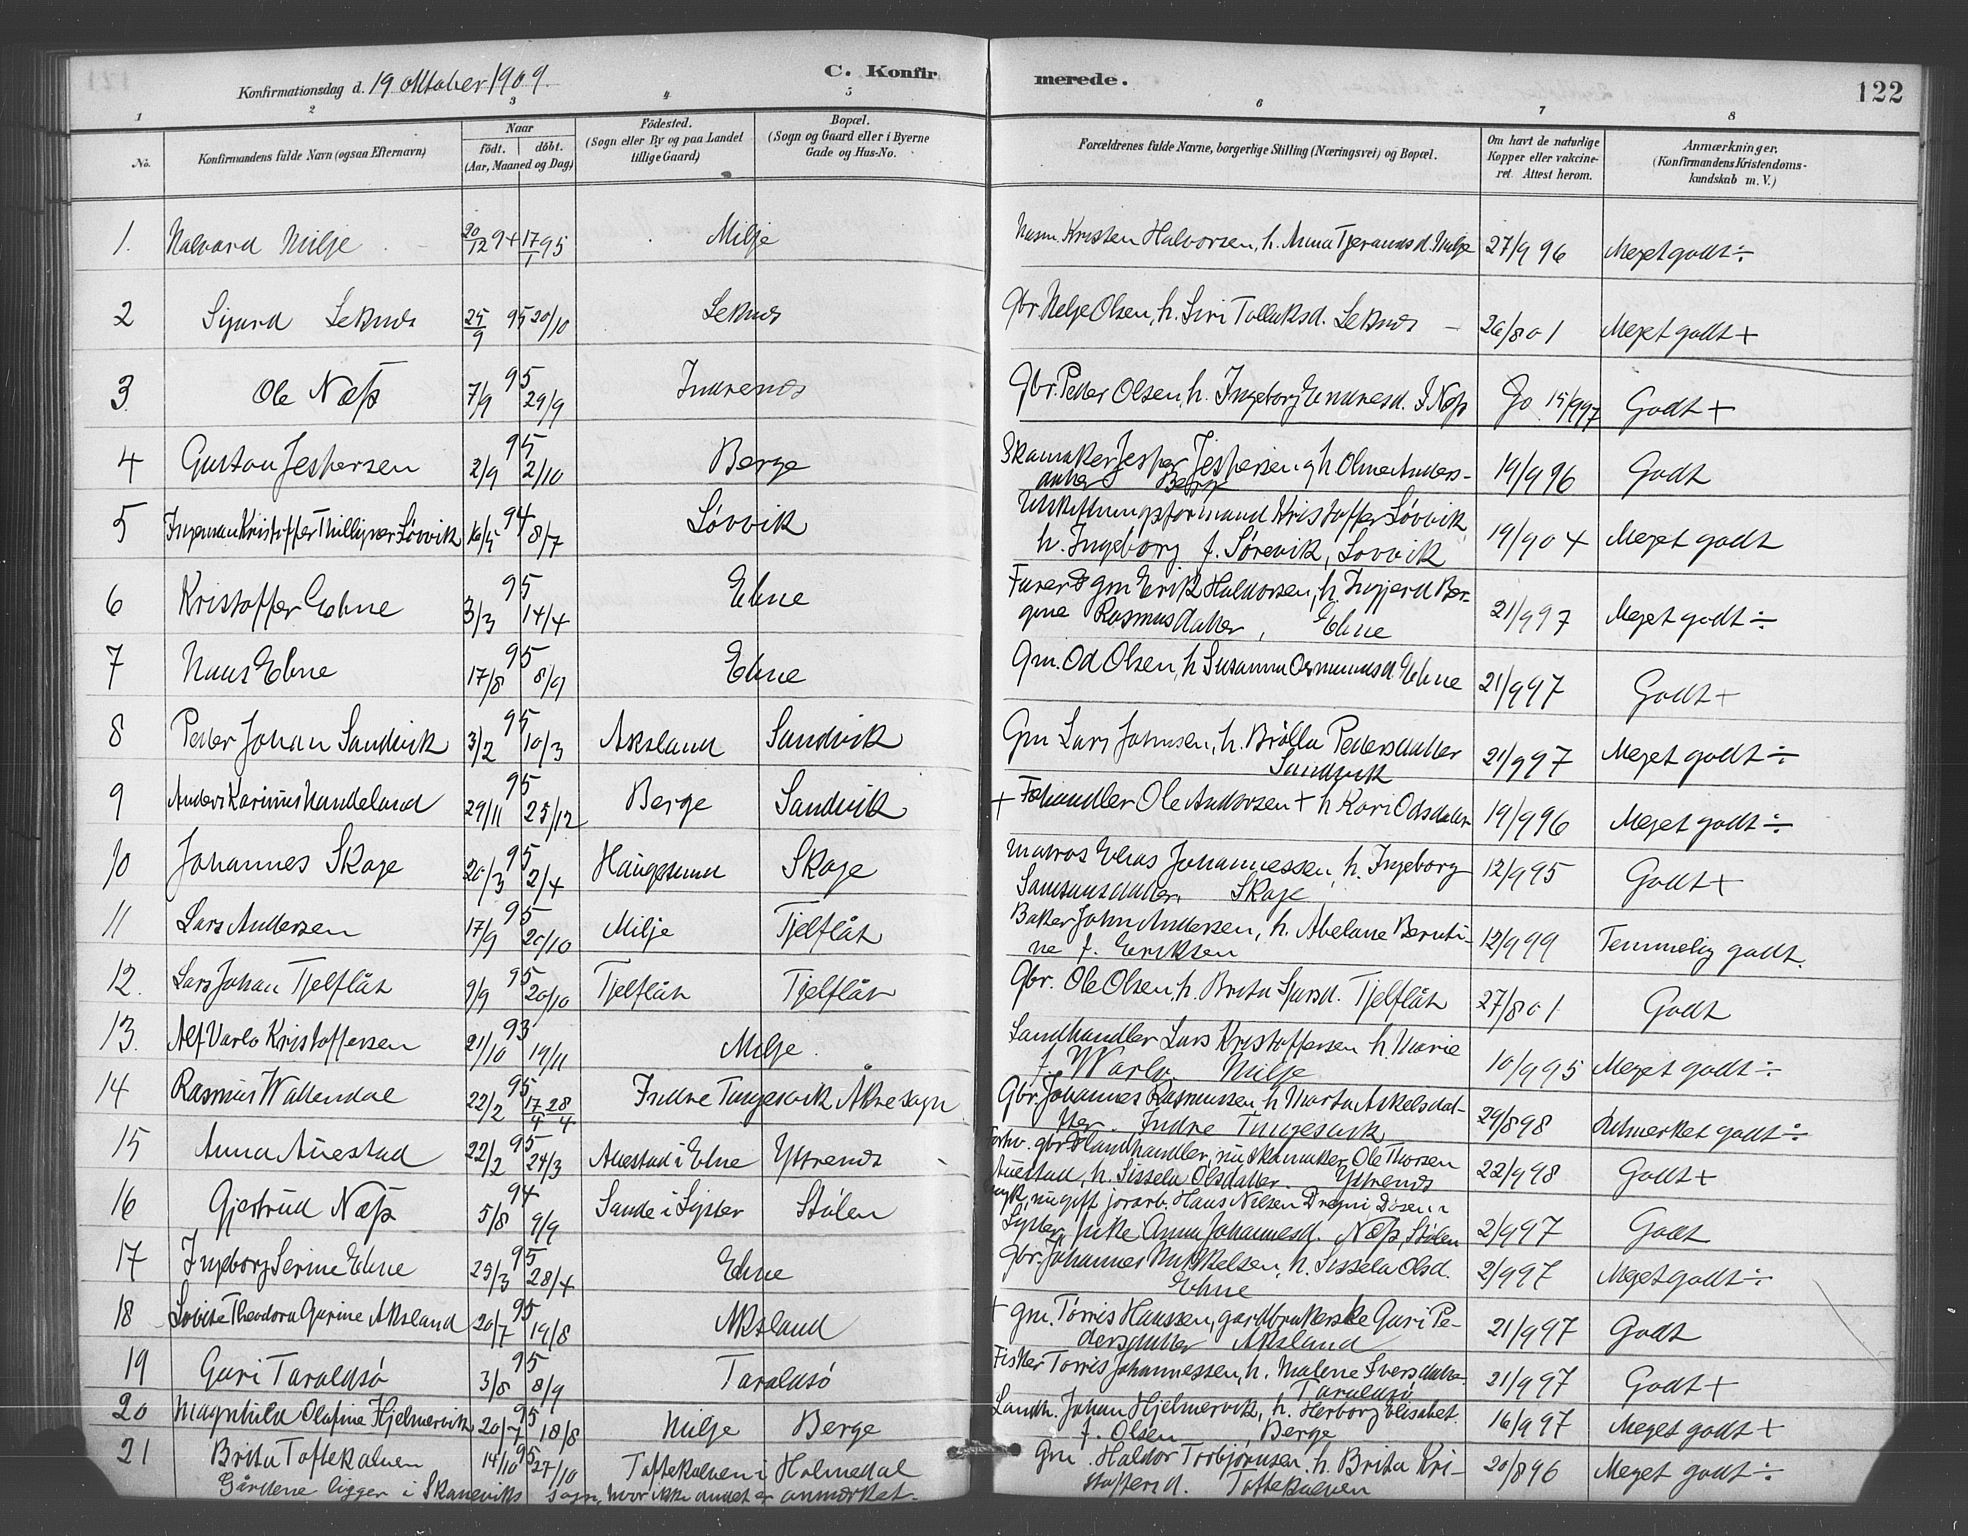 C. Konfirmerede.
122
Konfirmationsdag d. 19 oktober 1909.
1 2 3 4 5 6 7 8
No. Konfirmandens fulde Navn (ogsaa Efternavn) Naar födt. döbt. (Aar, Maaned og Dag) Födested. (Sogn eller By og paa Landet tillige Gaard) Bopæl. (Sogn og Gaard eller i Byerne Gade og Hus-No.
Forældrenes fulde Navne, borgerlige Stilling (Næringsvei) og Bopæl. Om havt de naturlige Kopper eller vakcineret. Attest herom. Anmærkninger. (Konfirmandens Kristendomskundskab m. V.)
1. Halvard Milje 20/12 94 17/1 95 Milje Kristen Halvorsen, h. Anna Tjerandsd. Milje 27/9 96 Meget godt ÷
2 Sigurd Leknes 25/9 95 20/10 Leknes Gbr. Helje Olsen, h. Siri Tolleksd. Leknes 26/8 01 Meget godt +
3 Ole Næss 7/9 95 29/9 Indrenes Gbr. Peder Olsen, h. Ingeborg Endresd. I. Næss 15/9 97 Godt +
4 Gustav Jespersen 2/9 95 2/10 Berge Skomaker Jesper Jespersen og h. Oline Anders-
datter Berge 19/9 96 Godt
5 Ingeman Kristoffer Løvvik 16/5 94 8/7 Løvvik Utskiftningsformand Kristoffer Løvvik,
h. Ingeborg f. Sørevik, Løvvik 19/9 04 Meget godt
6 Kristoffer Ebne 3/3 95 14/4 Ebne Furer & gm. Erik Haldorsen, h. Ingjerd Ber-
gine Rasmusdatter, Ebne 21/9 97 Meget godt ÷
7 Hans Ebne 17/8 95 8/9 Ebne Gm. Od Olsen, h. Susanna Osmundsd. Ebne 21/9 97 Godt +
8 Peder Johan Sandvik 3/2 95 10/3 Aksland Sandvik Gm. Lars Johnsen, h. Brølla Pedersdatter
Sandvik 21/9 97 Meget godt ÷
9 Anders Karinius Handeland 29/11 95 25/12 Berge Sandvik + Fehandler Ole Anderssen + h. Kari Odsdatter 19/9 96 Meget godt ÷
10 Johannes Skage 20/3 95 2/4 Haugesund Skage Matros Elias Johannessen, h. Ingeborg
Samsonsdatter, Skage 12/9 95 Godt +
11 Lars Andersen 17/9 95 20/10 Milje Tjelflåt Baker John Andersen, h. Abelane Bernti-
ne f. Eriksen 12/9 99 Temmelig godt.
12. Lars Johan Tjelflåt 9/9 95 20/10 Tjelflåt Tjelflåt Gbr. Ole Olsen, h. Brita Sjursd. Tjelflåt 27/8 01 Godt
13. Alf Varlo Kristoffersen 21/10 93 19/11 Milje. Landhandler Lars Kristoffersen h. Marie
f. Warlo Milje 10/9 95 Meget godt ÷
14 Rasmus Wallendal 22/2 95 17/4 28/4 Indre Tungesvik Åkre sogn Gbr. Johannes Rasmussen h. Marta Askelsdat-
ter. Indre Tungesvik 29/8 98 Udmerket godt ÷
15 Anna Auestad 22/2 95 24/3 Auestad i Ebne Ytrenes Forhv. gbr & landhandler, nu skomaker Ole Thorsen
Auestad, h. Sissela Olsdatter. Ytrenes 22/9 98 Godt +
16 Gjertrud Næss 5/8 94 9/9 Sande i Lyster Stølen nu gift jorarb. Hans Nilsen Dregni, Døsen i
Lyster, pike Anna Johannesd. Næss, Stølen 2/9 97 Godt
17 Ingeborg Serine Ebne 25/3 95 28/4 Ebne Gbr. Johannes Mikkelsen, h. Sissela Olsd.
Ebne 2/9 97 Meget godt ÷
18 Lovise Theodora Gurine Aksland 20/7 95 19/8 Aksland + gm. Tørris Hanssen, gardbrukerske Guri Pe-
dersdatter Aksland 21/9 97 Godt
19 Guri Taraldsø 3/8 95 8/9 Taraldsø Fisker Tørris Johannessen, h. Malene Iversdatter
Taraldsø 21/9 97 Godt +
20 Magnhild Olafine Hjelmervik 20/7 95 18/8 Milje Berge Landh. Johan Hjelmervik, h. Herborg Elisabet
f. Olsen, Berge 16/9 97 Meget godt +
21 Brita Toftekalven 14/10 95 27/10 Toftekalven i Holmedal Gm. Haldor Torbjørnsen, h. Brita Kri-
stoffersd. Toftekalven 20/8 96 Meget godt ÷
Gårdene ligger i Skånevik sogn, hvor ikke andet er anmerket.